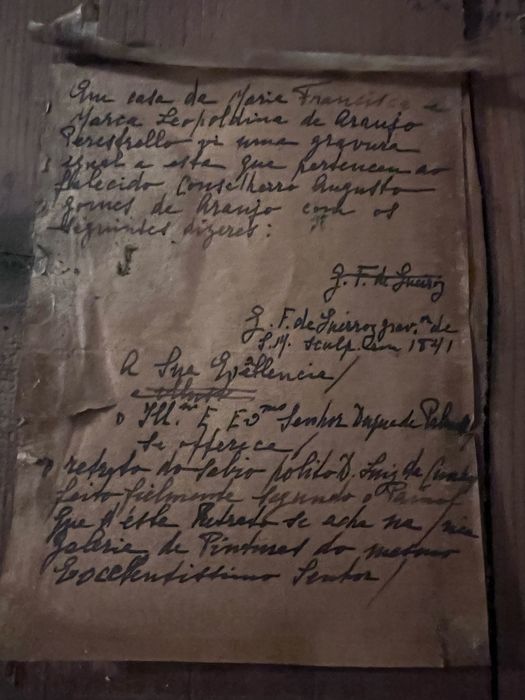 Em casa da Maria Francisca e
Marca Leopoldina de Araujo
Perestrello vi uma gravura
egual a esta que pertenceu ao
falecido Conselheiro Augusto
gomes de Araujo com os
seguintes dizeres:
G. F. de Queiroz
G. F. de Queiroz grav.or de
S. M. sculp. em 1841
A Sua Excellencia /
o Ill.mo E Ex.mo Senhor Duque de
se offerece /
o retrato do sabio polito D. Luiz da Cunha
feito fielmente segundo o
que d'este Retrato se acha na / na
galeria de Pinturas do mesmo
Excellentissimo Senhor /